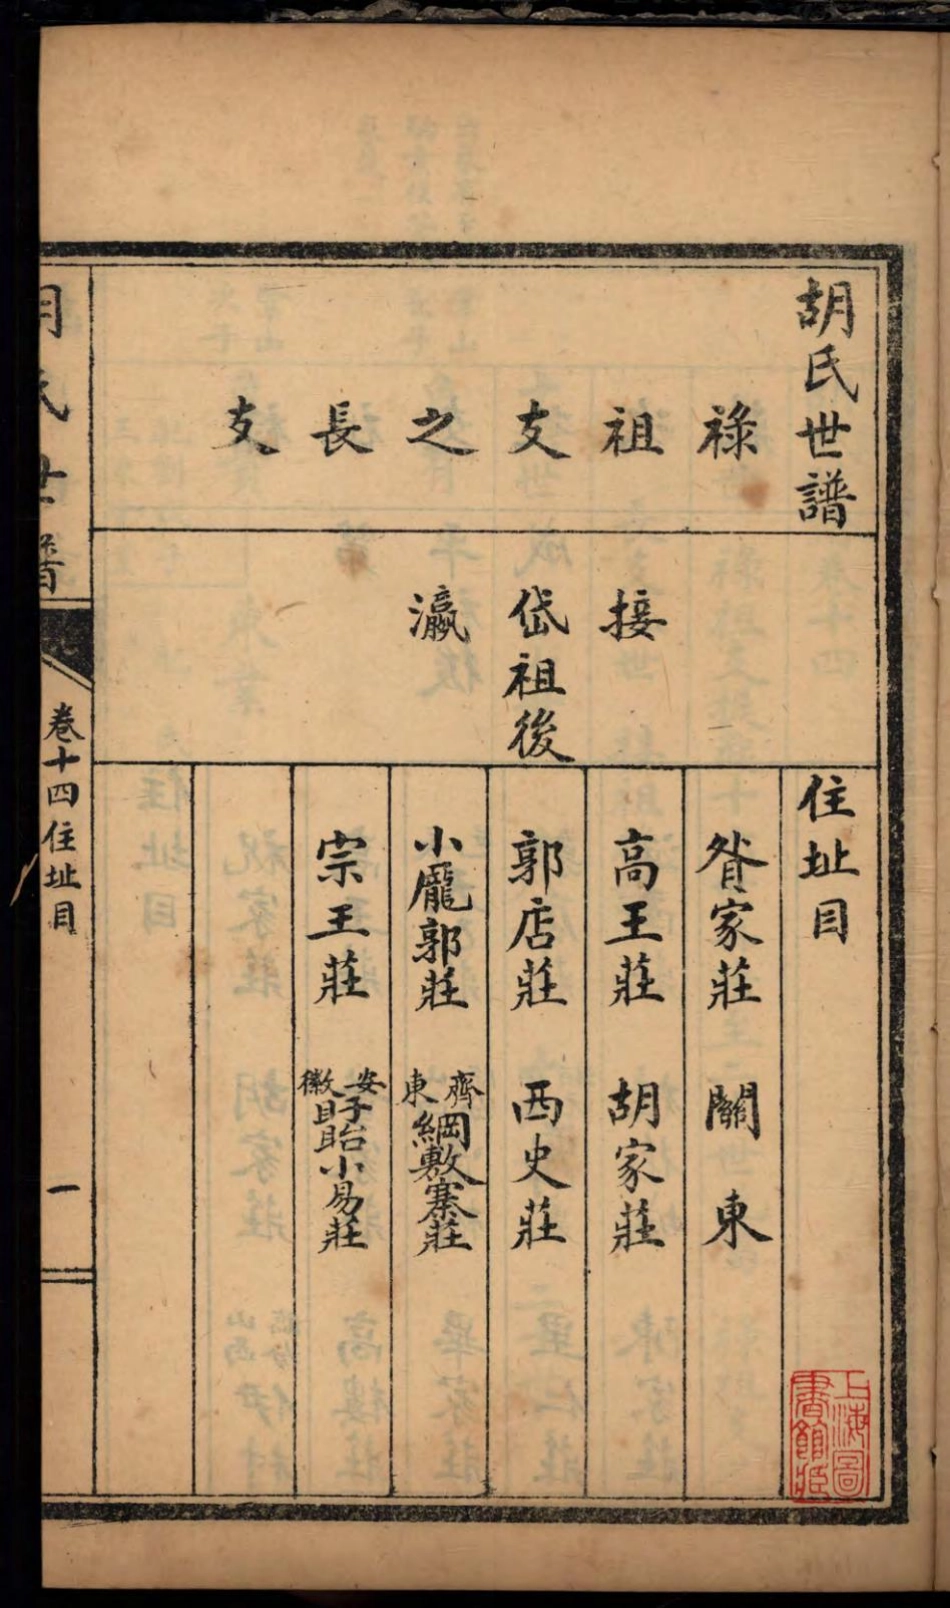 胡氏世譜
住址目
祿祖支之長支
接
岱祖後
瀛
昝家莊 關東
高王莊 胡家莊
郭店莊 西史莊
小龐郭莊 齊東綱敷寨莊
宗王莊 安徽盱眙小易莊
胡氏世譜
卷十四住址目
一
上海圖書館藏